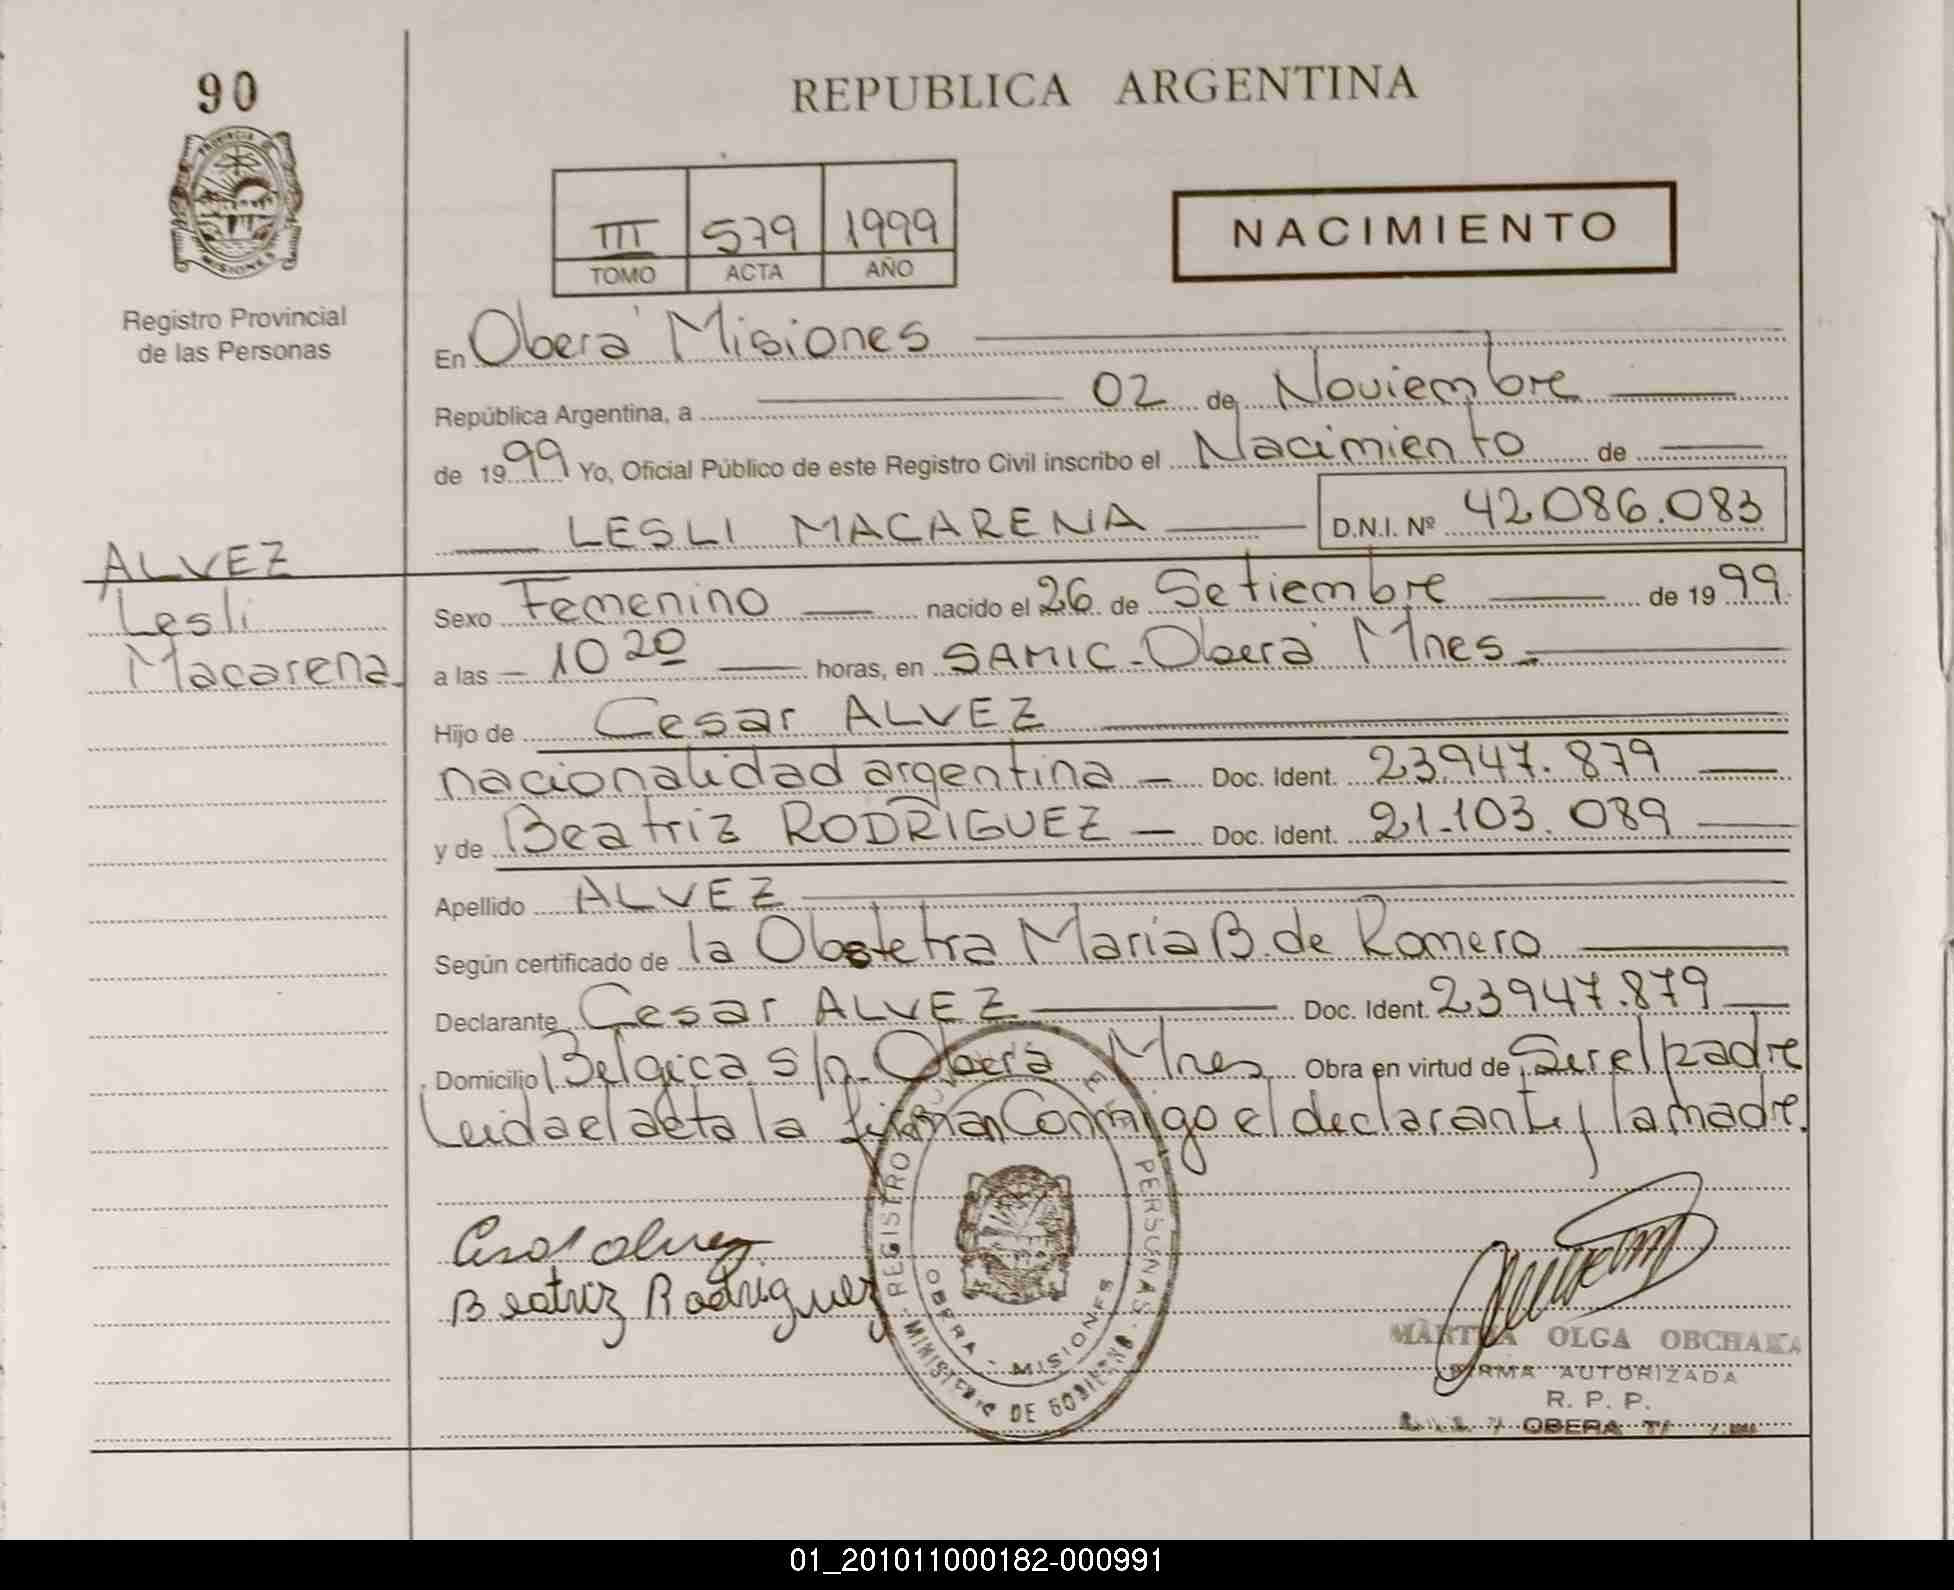 90
REPUBLICA ARGENTINA
PROVINCIA D
MISIONES
Registro Provincial
de las Personas
III 579 1999
TOMO ACTA AÑO
NACIMIENTO
En Oberá Misiones
República Argentina, a 02 de Noviembre
de 1999 Yo, Oficial Público de este Registro Civil inscribo el Nacimiento de
LESLI MACARENA D.N.I. Nº 42.086.083
ALVEZ
Lesli
Macarena
Sexo Femenino nacido el 26 de Setiembre de 1999
a las 10 20 horas, en SAMIC - Oberá Mnes
Hijo de Cesar ALVEZ
nacionalidad argentina Doc. Ident. 23.947.879
y de Beatriz RODRIGUEZ Doc. Ident. 21.103.089
Apellido ALVEZ
Según certificado de la Obstetra Maria B. de Romero
Declarante Cesar ALVEZ Doc. Ident. 23947.879
Domicilio Belgica s/n - Oberá Mnes Obra en virtud de Ser el padre
Leida el acta la firman Conmigo el declarante y la madre.
Cesar alvez
Beatriz Rodriguez
REGISTRO PERSONAS
OBERA - MISIONES
MINISTERIO DE GOBIERNO
MARTHA OLGA OBCHAKA
FIRMA AUTORIZADA
R. P. P.
OBERA
01_201011000182-000991